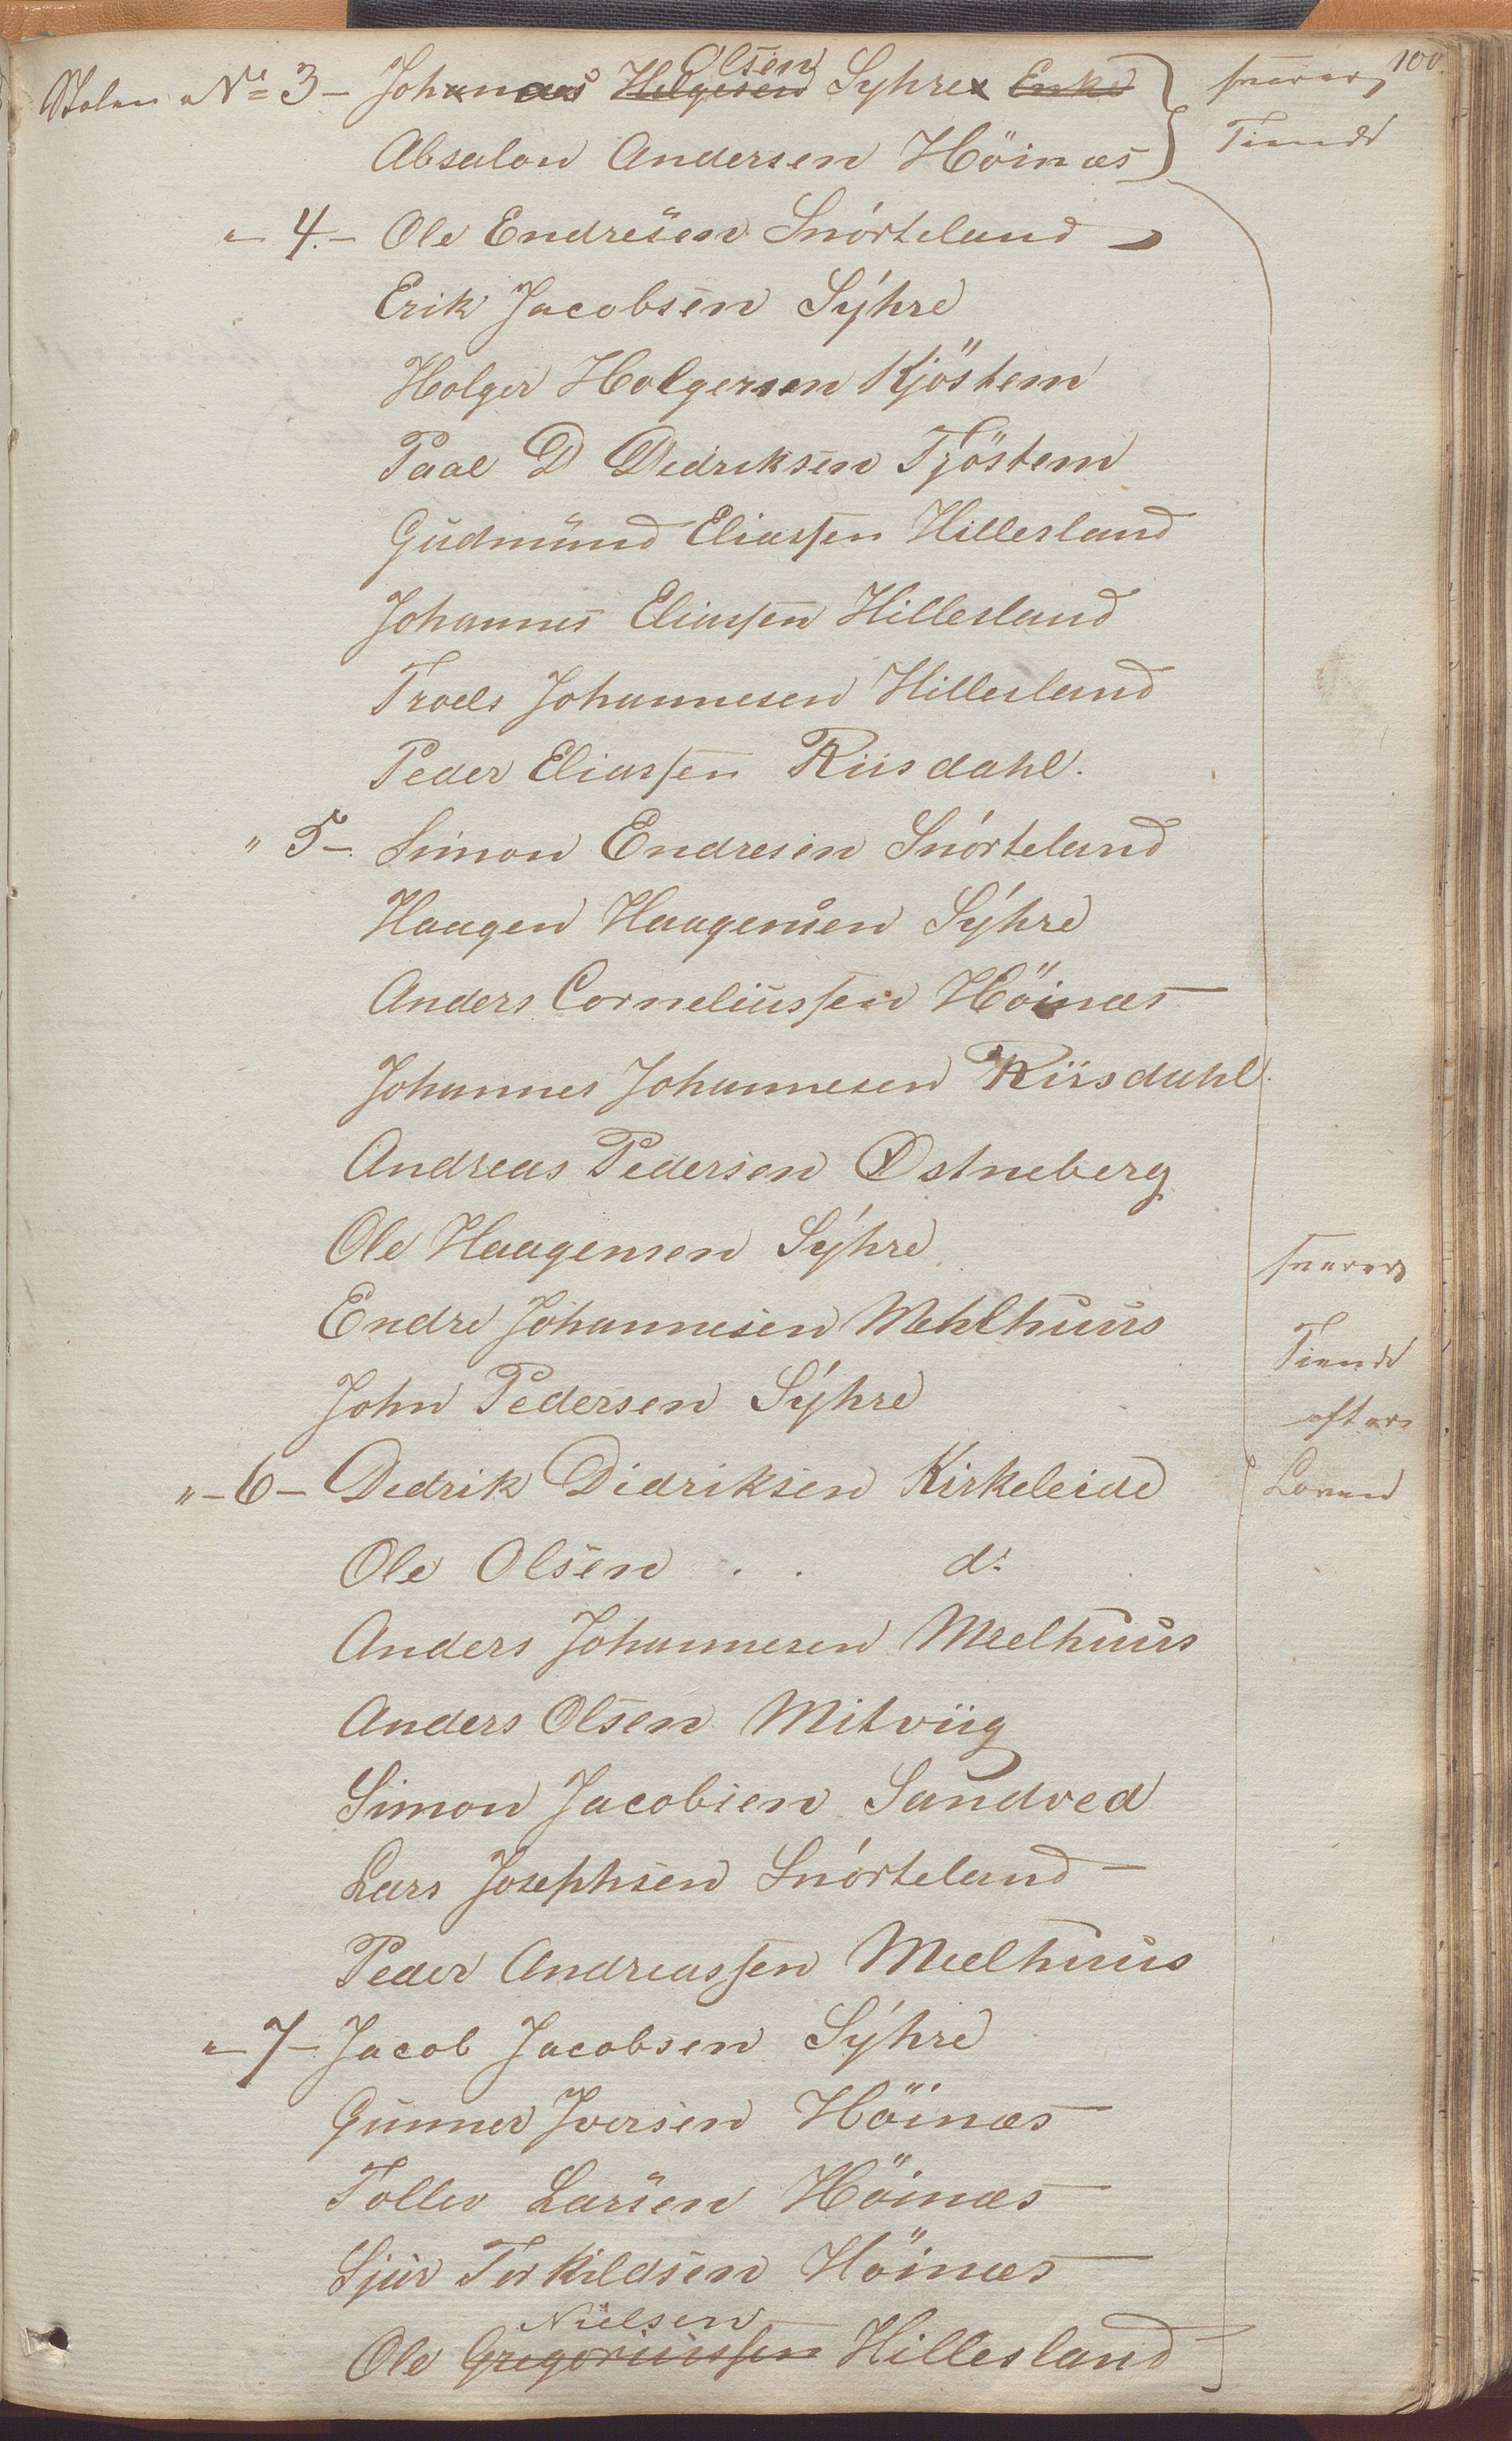 100.
Stolen N° 3 – Johannes Helgesen Olsen Syhre Enke
Absalon Andersen Höinæs
svarer
Tiende
" 4. – Ole Endresen Snórteland
Erik Jacobsen Sýhre
Holger Holgersen Kjöstem
Paal D Didriksen Tjöstem
Gudmund Eliassen Hillesland
Johannes Eliassen Hillesland
Troels Johannesen Hillesland
Peder Eliassen Riisdahl.
" 5 – Simon Endresen Snórteland
Haagen Haagensen Sýhre
Anders Corneliussen Höinæs
Johannes Johannesen Riisdahl.
Andreas Pedersen Østneberg
Ole Haagensen Sýhre
Endre Johannesen Mehlhuus
John Pedersen Sýhre
svarer
Tiende
efter
Loven
" – 6 – Didrik Didriksen Kirkeleide
Ole Olsen . . d:
Anders Johannesen Meelhuus
Anders Olsen Mitviig
Simon Jacobsen Sandved
Lars Josephsen Snórteland
Peder Andreassen Meelhuus
" 7 – Jacob Jacobsen Sýhre
Gunner Iversen Höinæs
Tollev Larsen Höinæs
Sjur Torkildsen Höinæs
Nielsen
Ole Gregoriussen Hillesland